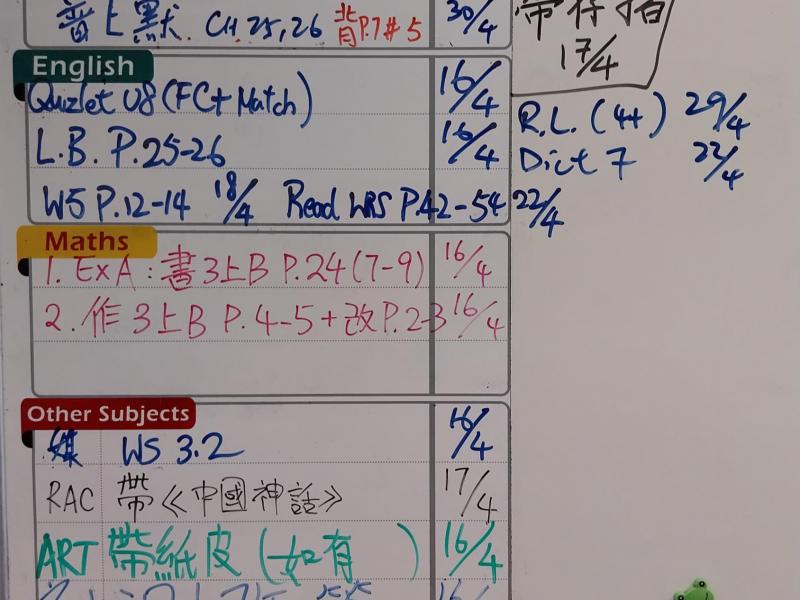 普上默. CH.25,26 背P.7#5 30/4
17/4
English
Quizlet U8 (FC+Match) 16/4
R.L. (4+) 29/4
L.B. P.25-26 16/4
Dict 7 22/4
W5 P.12-14 18/4 Read WRS P.42-54 22/4
Maths
1. ExA: 書3上B P.24(7-9) 16/4
2. 作3上B P.4-5+改P.2-3 16/4
Other Subjects
媒 WS 3.2 16/4
RAC 帶《中國神話》 17/4
ART 帶紙皮(如有 ) 16/4